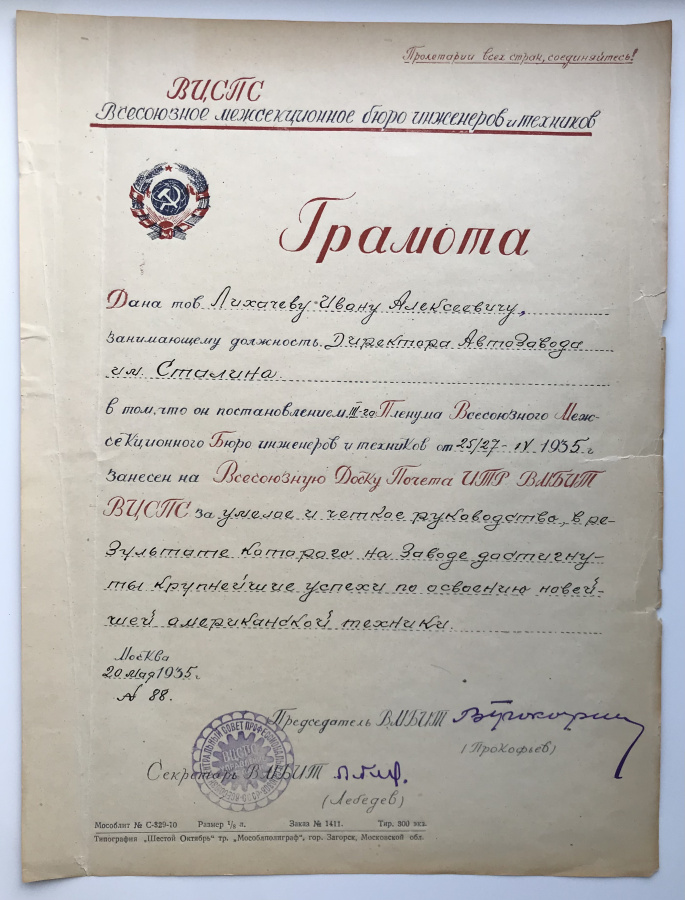 Пролетарии всех стран, соединяйтесь!
ВЦСПС
Всесоюзное межсекционное бюро инженеров и техников
Грамота
Дана тов. Лихачеву Ивану Алексеевичу,
занимающему должность Директора Автозавода
им. Сталина
в том, что он постановлением III-го Пленума Всесоюзного Меж-
секционного Бюро инженеров и техников от 25/27-IV 1935 г
занесен на Всесоюзную Доску Почета ИТР ВМБИТ
ВЦСПС за умелое и четкое руководство, в ре-
зультате которого на Заводе достигну-
ты крупнейшие успехи по освоению новей-
шей американской техники.
Москва
20 мая 1935 г.
№ 88.
Председатель ВМБИТ
(Прокофьев)
Секретарь ВМБИТ
(Лебедев)
ВЦСПС
Мособлит № С-829-10 Размер 1/8 л. Заказ № 1411. Тир. 300 экз.
Типография „Шестой Октябрь“ тр. „Мособлполиграф“, гор. Загорск, Московской обл.